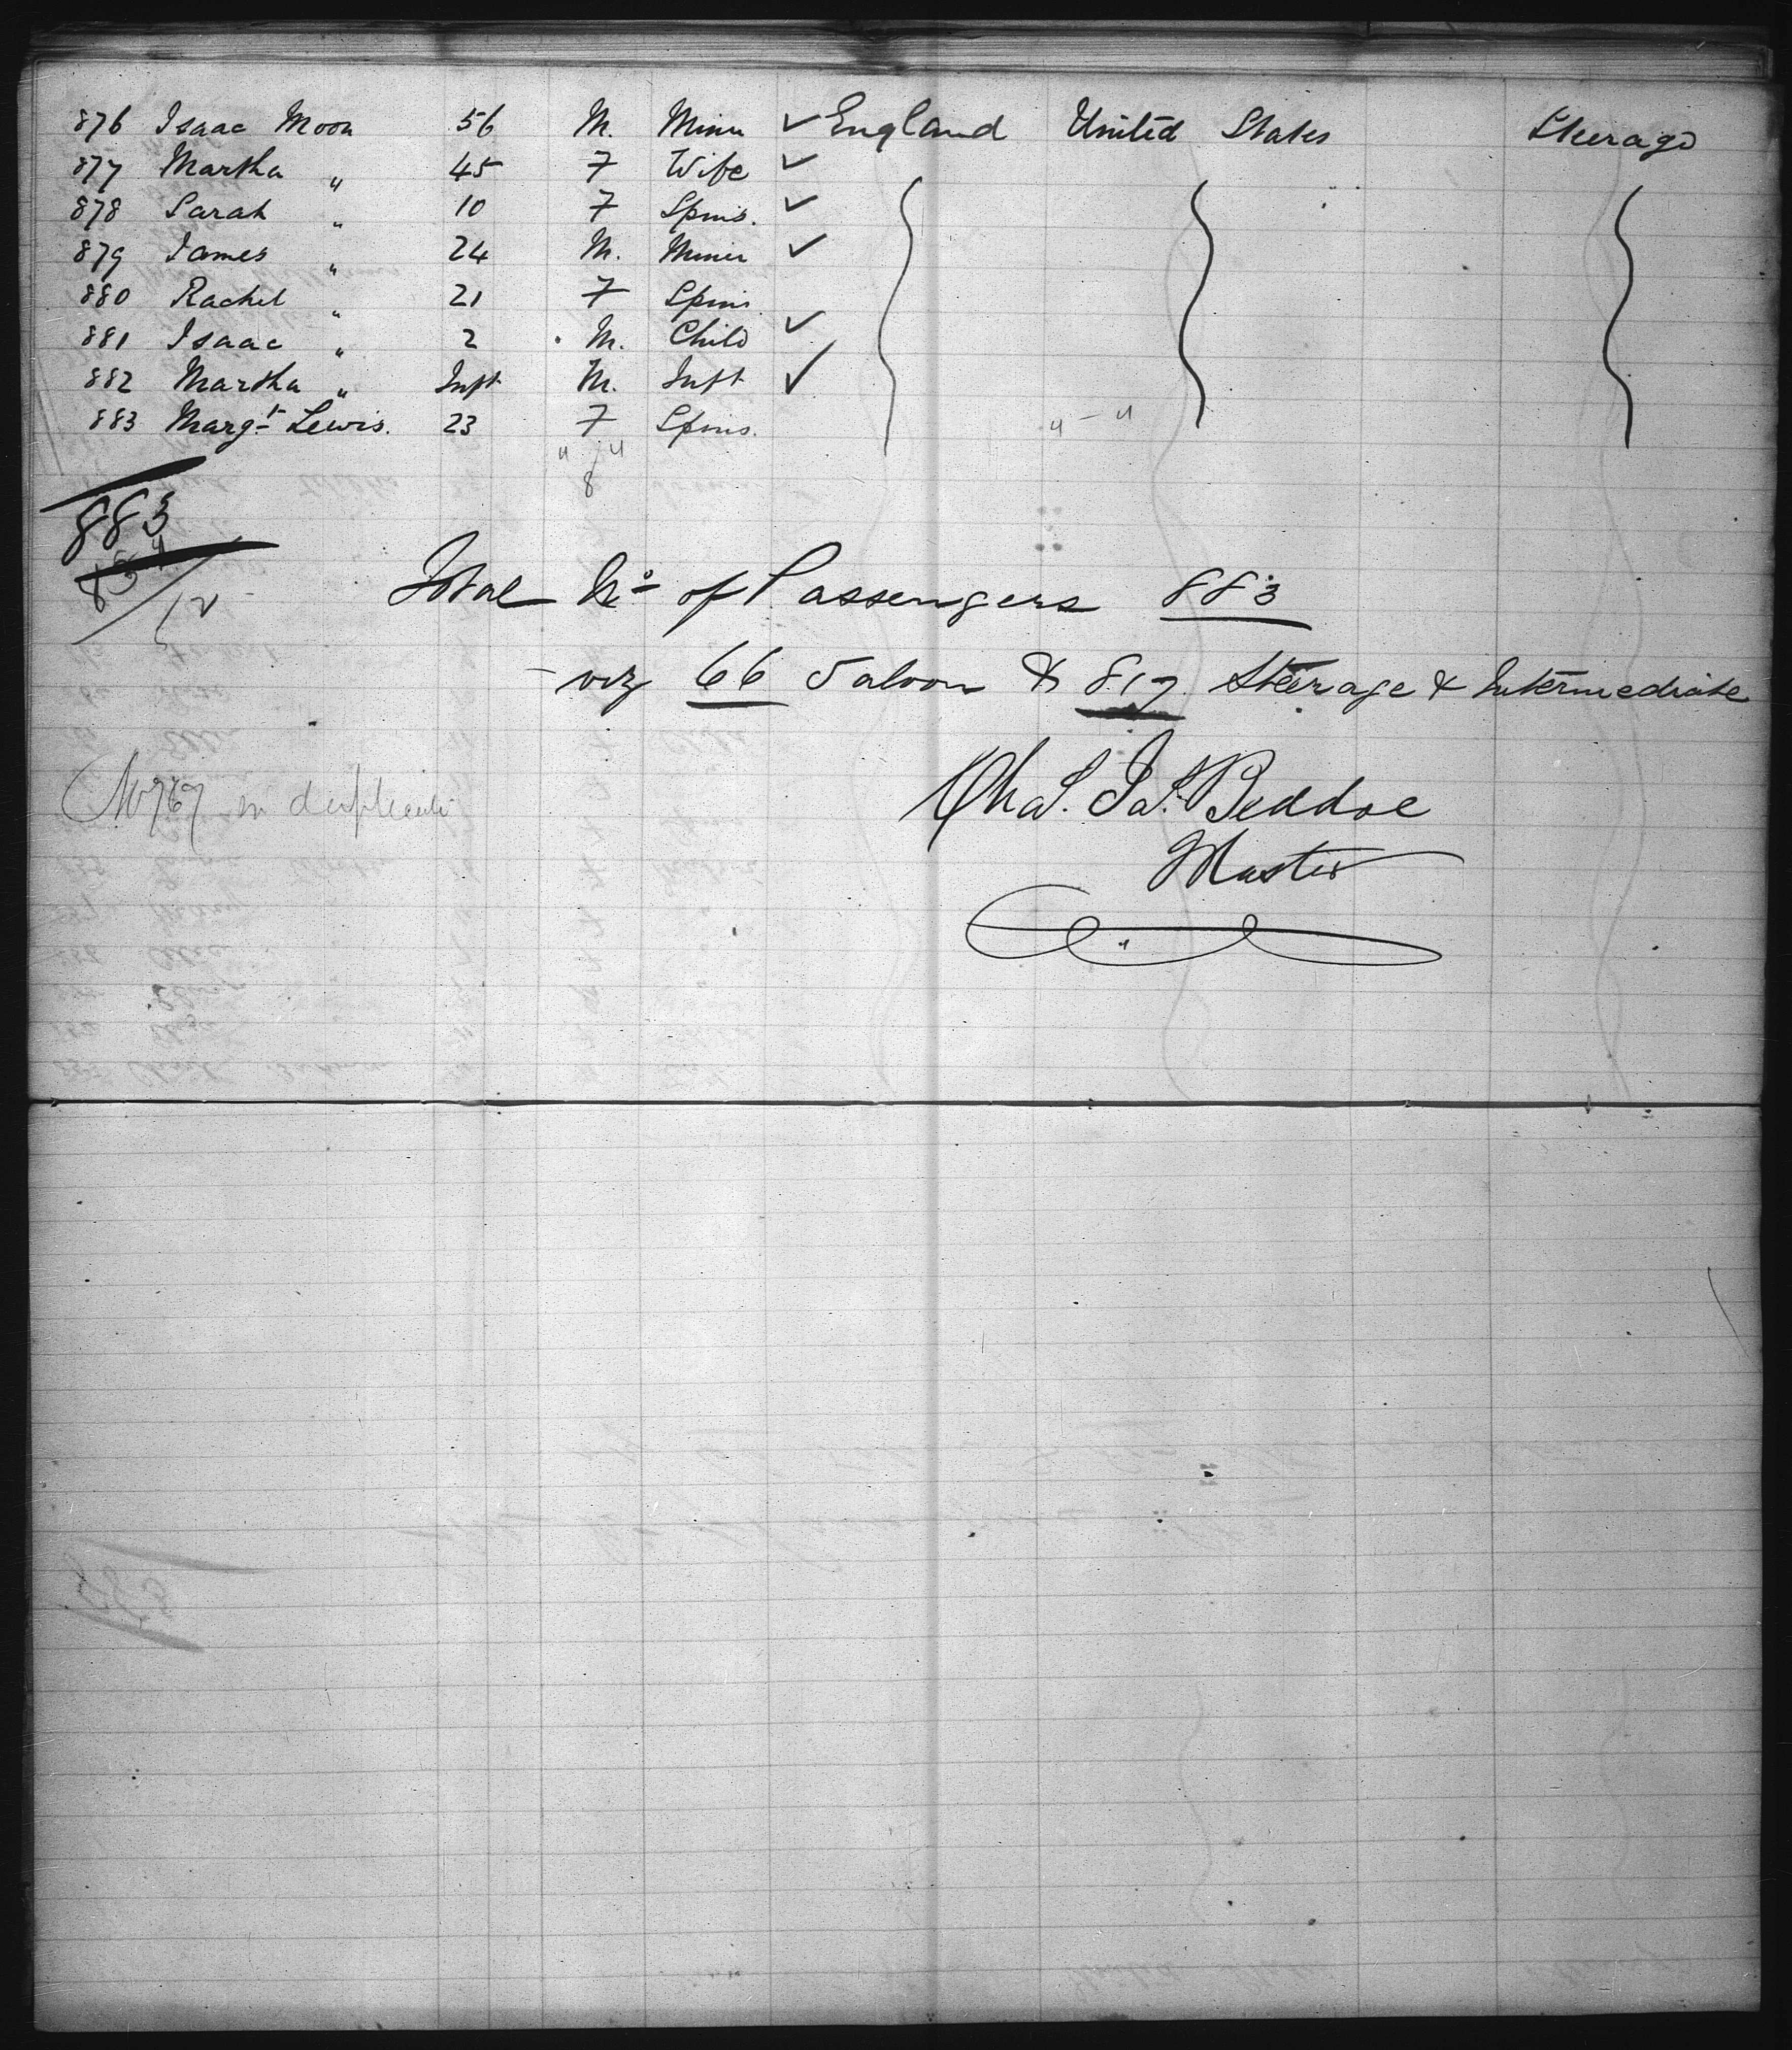 876 Isaac Moon 56 M. Miner ✓ England United States Steerage
877 Martha " 45 F Wife ✓
878 Sarah " 10 F Spins. ✓
879 James " 24 M. Miner ✓
880 Rachel " 21 F Spins
881 Isaac " 2 M. Child ✓
882 Martha " Inft M. Inft ✓
883 Margt Lewis. 23 F Spins.
" "
8
" - "
883
12
Total No of Passengers 883
- viz 66 Saloon & 817 Steerage & Intermediate
Chas. Jas. Beddoe
Master
in duplicate